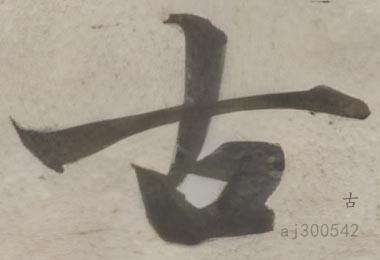 古
古
aj300542